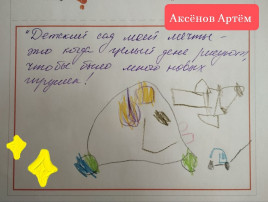 Аксёнов Артём
"Детский сад моей мечты -
это когда целый день рисуют,
чтобы было много новых
игрушек!